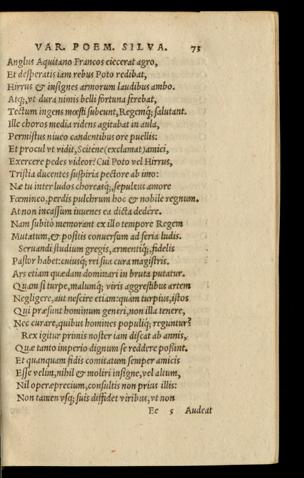 VAR. POEM. SILVA. 73
Anglus Aquitano Francos eiecerat agro,
Et desperatis iam rebus Poto redibat,
Hirrus & insignes armorum laudibus ambo.
Atq;, vt dura nimis belli fortuna ferebat,
Tectum ingens mœsti subeunt, Regemq́; salutant.
Ille choros media ridens agitabat in aula,
Permistus niueo candentibus ore puellis:
Et procul vt vidit, Sciténe (exclamat) amici,
Exercere pedes videor? Cui Poto vel Hirrus,
Tristia ducentes suspiria pectore ab imo:
Næ tu inter ludos choreasq́;, sepultus amore
Fœmineo, perdis pulchrum hoc & nobile regnum.
At non incassum iuuenes ea dicta dedere.
Nam subitò memorant ex illo tempore Regem
Mutatum, & postis conuersum ad seria ludis.
Seruandi studium gregis, armentiq́;, fidelis
Pastor habet: cuiusq́; rei sua cura magistris.
Ars etiam quædam dominari in bruta putatur.
Quam si turpe, malumq́; viris aggrestibus artem
Negligere, aut nescire etiam: quàm turpius, istos
Qui præsunt hominum generi, non illa tenere,
Nec curare, quibus homines populiq́; reguntur?
Rex igitur primis noster iam discat ab annis,
Quæ tanto imperio dignum se reddere possint.
Et quanquam fidis comitatum semper amicis
Esse velim, nihil & moliri insigne, vel altum,
Nil operæprecium, consultis non prius illis:
Non tamen vsq; suis diffidet viribus, vt non
Ee 5 Audeat